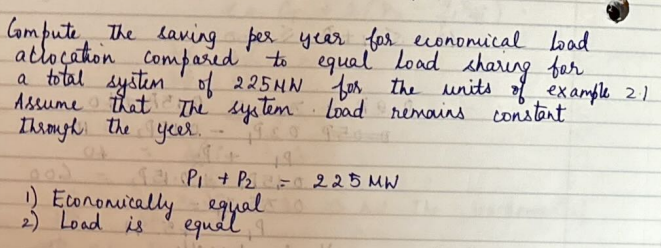 Compute the saving per year for economical load
allocation compared to equal load sharing for
a total system of 225MW for the units of example 2.1
Assume that the system load remains constant
through the year.
P1 + P2 = 225 MW
1) Economically equal
2) Load is equal